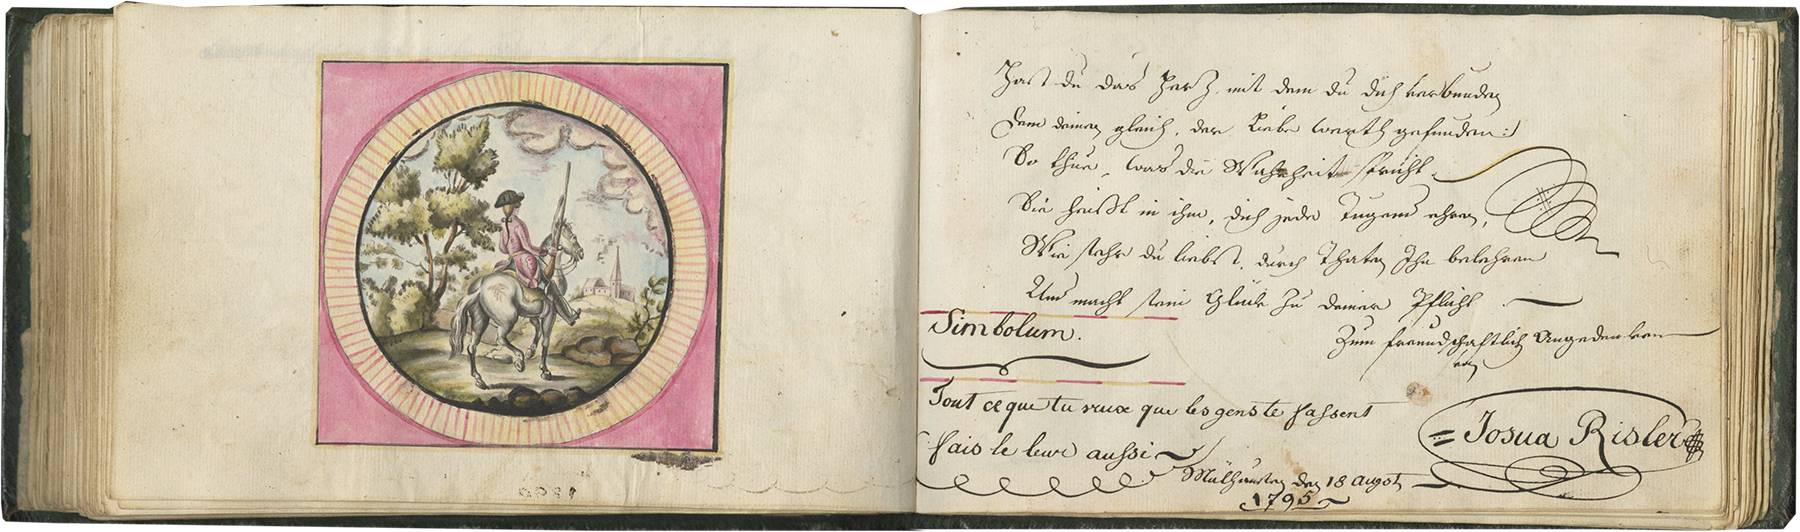 Hast du das Herz, mit dem du dich verbunden
Dem deinen gleich, der Liebe werth gefunden:
So thue, was die Wahrheit spricht
Sie heißt in ihm, dich jede Tugend ehren,
Wie sehr du liebst, durch Thaten Ihn belehren
Und macht sein Glück zu deiner Pflicht
Zum freundschaftlich Angedenken
von
Simbolum.
Tout ce que tu veux que les gens te fassent
fais le leur aussi
= Josua Risler
Mülhausen den 18 augst
1795